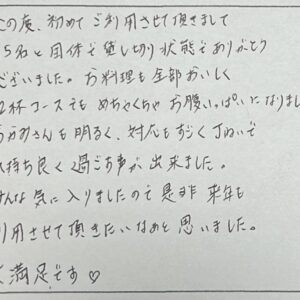 の度、初めてご利用させて頂きまして
5名と団体で貸し切り状態でありがとう
ございました。お料理も全部おいしく
杯コースでもめちゃくちゃお腹いっぱいになりまし
かみさんも明るく、対応もすごく丁ねいで
持ち良く過ごす事が出来ました。
んな気に入りましたので是非来年も
用させて頂きたいなぁと思いました。
満足です♡